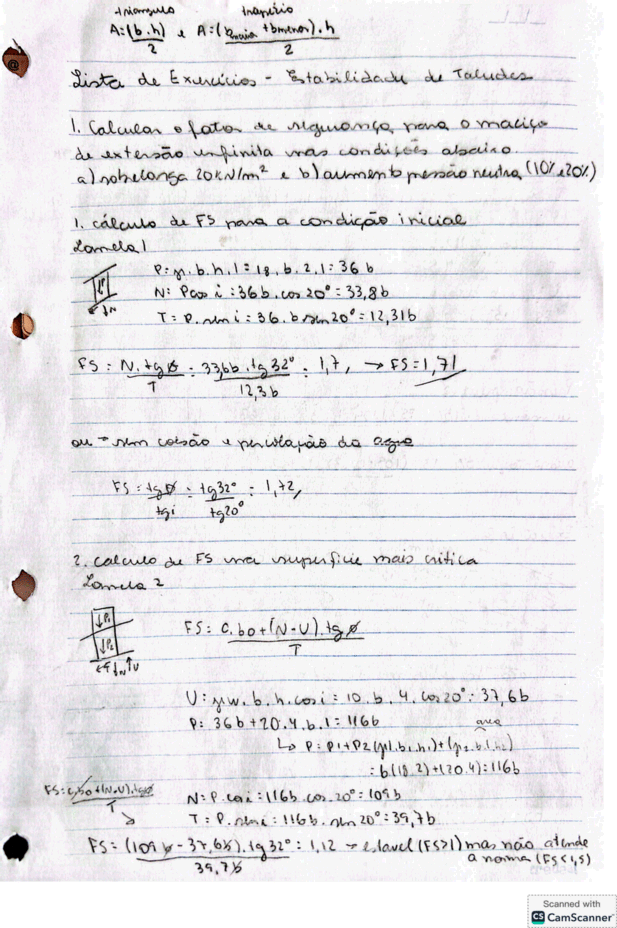 triangulo trapézio
A=(b.h)/2 e A=(bmaior+bmenor).h/2
Lista de Exercícios - Estabilidade de Taludes
1. Calcular o fator de segurança para o maciço
de extensão infinita nas condições abaixo.
a) sobrecarga 20kN/m² e b) aumento pressão neutra (10% e 20%)
1. cálculo de FS para a condição inicial
Lamela 1
P = γ.b.h.1 = 18.b.2.1 = 36b
N = Pcos i = 36b.cos20° = 33,8b
T = P.sen i = 36.b sen20° = 12,31b
FS = N.tgø/T = 33,6b.tg32°/12,3b = 1,7, → FS = 1,71
ou → sem coesão e percolação da água
FS = tgø/tgi = tg32°/tg20° = 1,72,
2. calculo de FS na superficie mais critica
Lamela 2
P1
P2
T N U
FS = c.bo+(N-U).tgø/T
U = γw.b.h.cos i = 10.b.4.cos20° = 37,6b
P = 36b+20.4.b.1 = 116b
área
↳ P = P1+P2 (γ1.b1.h1)+(γ2.b.1.h2)
= b(18.2)+(20.4) = 116b
FS = c.bo+(N-U).tgø/T
N = P.cos i = 116b.cos20° = 109b
T = P.sen i = 116b.sen20° = 39,7b
FS = (109b-37,6b).tg32°/39,7b = 1,12 → estavel (FS>1) mas não atende
a norma (FS<1,5)
Scanned with
CS CamScanner